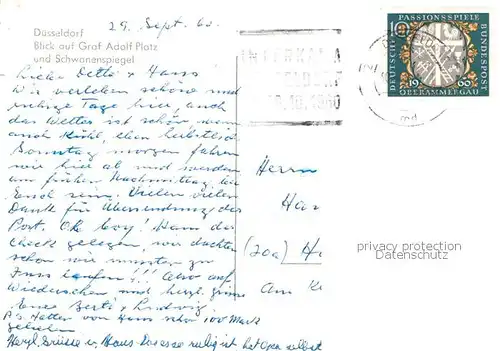 29. Sept. 60.
Düsseldorf
Blick auf Graf Adolf Platz
und Schwanenspiegel
Liebe Detta & Hans
Wir verleben schöne und
ruhige Tage hier, auch
das Wetter ist schön, wenn
auch kühl, eben herbstlich
Sonntag morgen fahren
wir hier ab und werden
am frühen Nachmittag bei
Euch sein. Vielen vielen
Dank für Übersendung der
Post. Oh boy! Ham der
Check gelegen, wir dachten
schon wir müssten zu
Fuss laufen!!! Also auf
Wiedersehen und herzl. Grüsse
Eure Berti & Ludwig
P.S. Hatten von Hans schon 100 Mark
geliehen
Herzl. Grüsse
ruhig ist selbst
INTERKAMA
10.1960
DEUTSCHE BUNDESPOST
PASSIONSSPIELE
10
1960
OBERAMMERGAU
Herrn
Han
(20a) Ha
Am K
privacy protection
Datenschutz